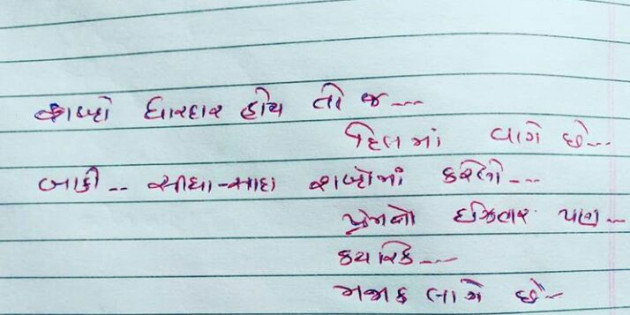 શબ્દો ધારદાર હોય તો જ ---
દિલમાં વાગે છે---
બાકી -- સીધા-સાદા શબ્દોમાં કરેલો---
પ્રેમનો ઈઝહાર પણ --
કયારેક ---
મજાક લાગે છે--